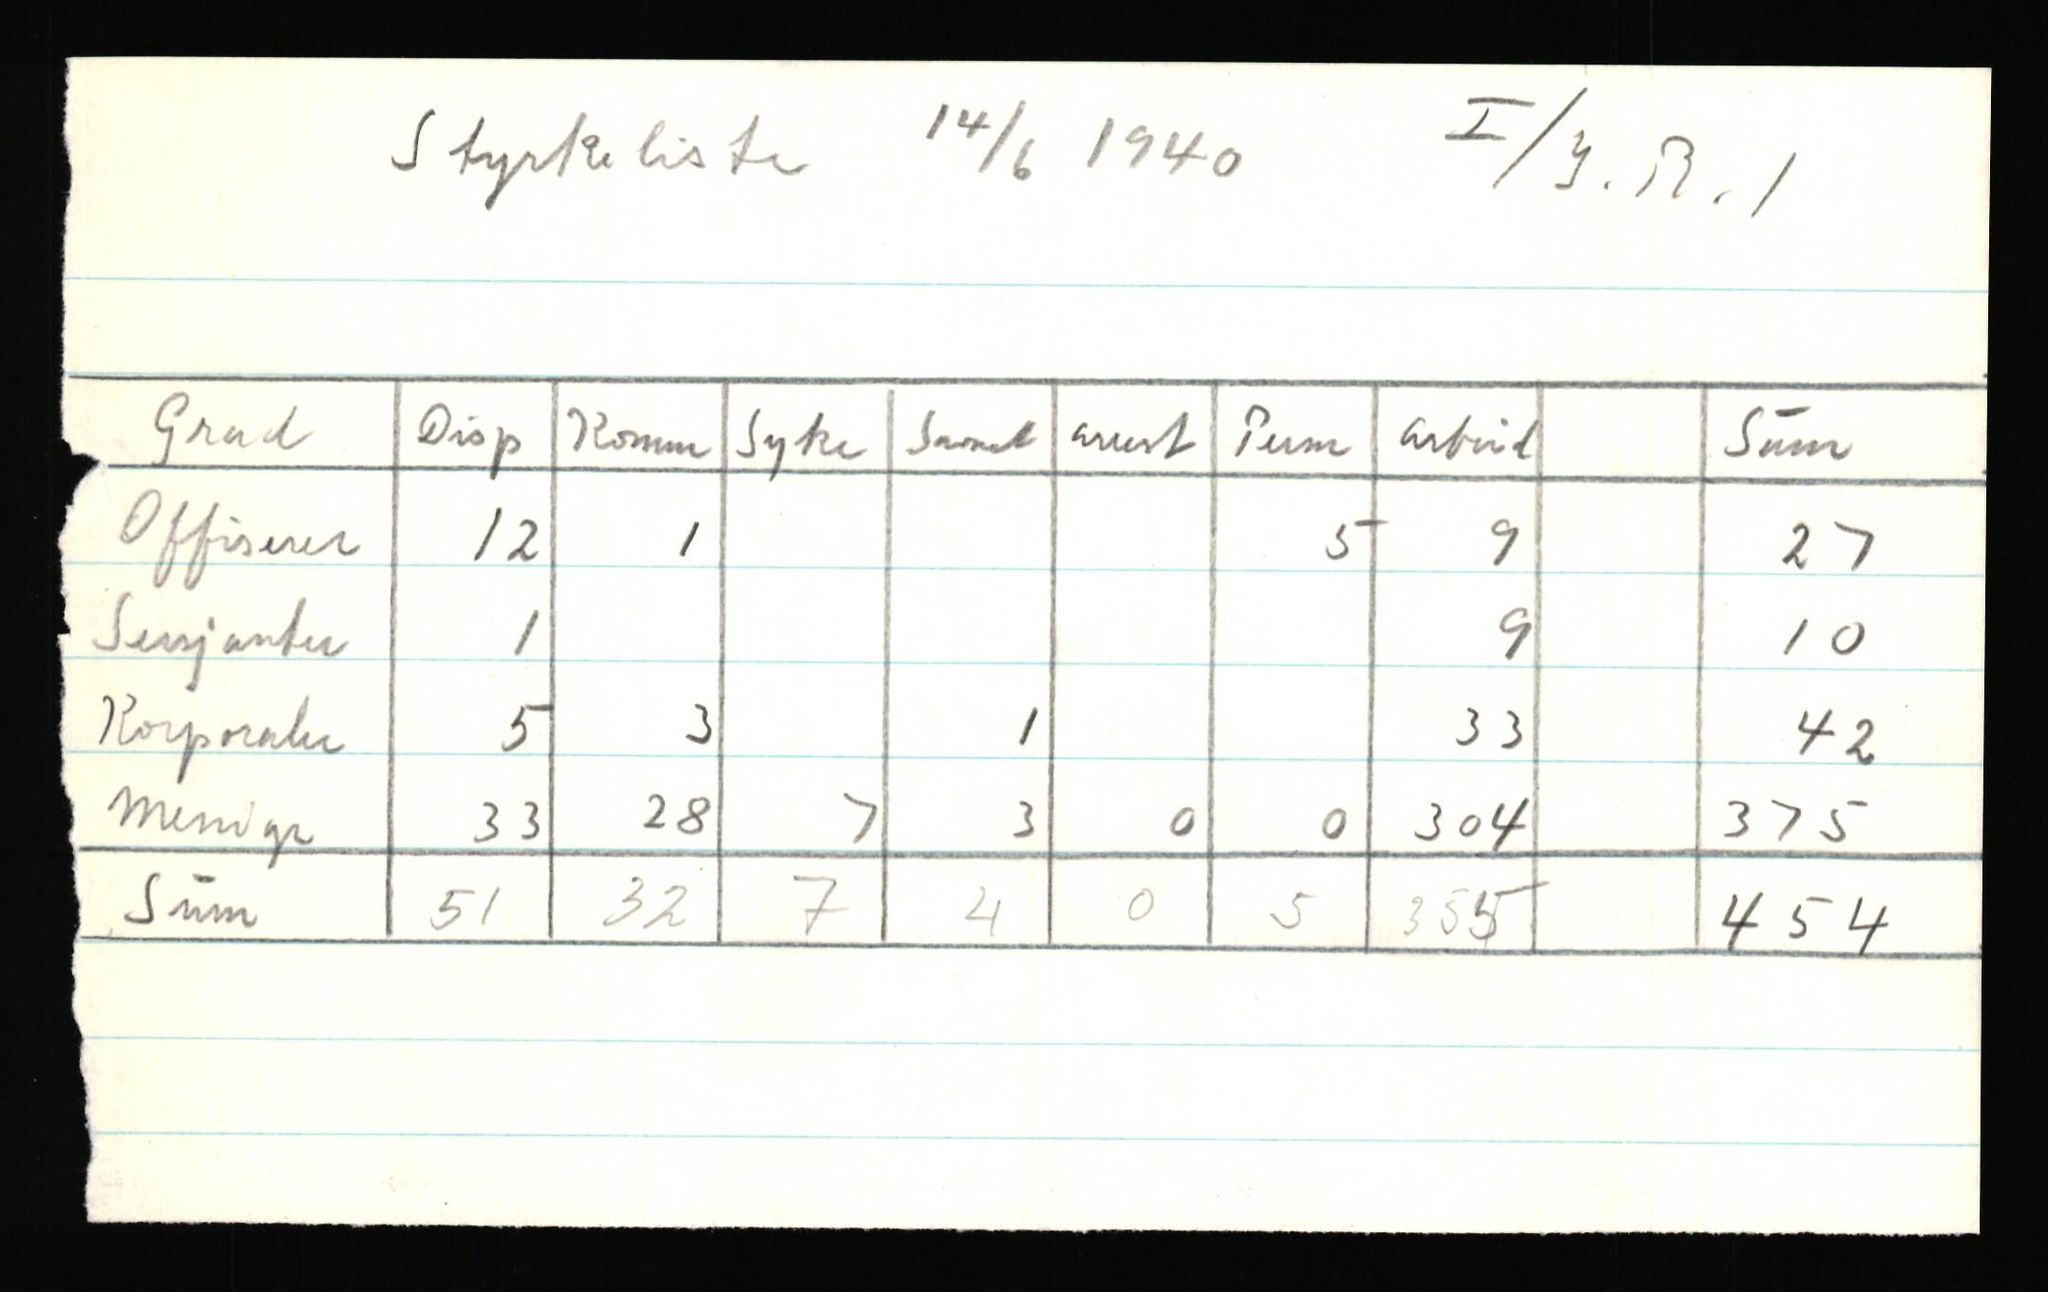 Styrkeliste 14/6 1940 I/J.R.1
Grad Disp Komm Syke Sanet arrest Perm arbeid Sum
Offiserer 12 1 5 9 27
Sersjanter 1 9 10
Korporaler 5 3 1 33 42
Menige 33 28 7 3 0 0 304 375
Sum 51 32 7 4 0 5 355 454